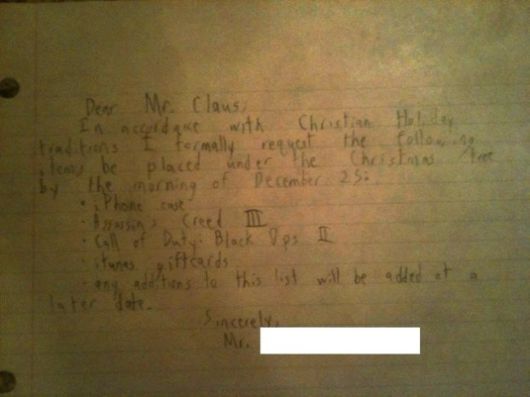 Dear Mr. Claus,
In accordance with Christian Holiday
traditions I formally request the following
items be placed under the Christmas tree
by the morning of December 25:
• iPhone case
• Assassin's Creed III
• Call of Duty: Black Ops II
• itunes giftcards
• any additions to this list will be added at a
later date.
Sincerely,
Mr.